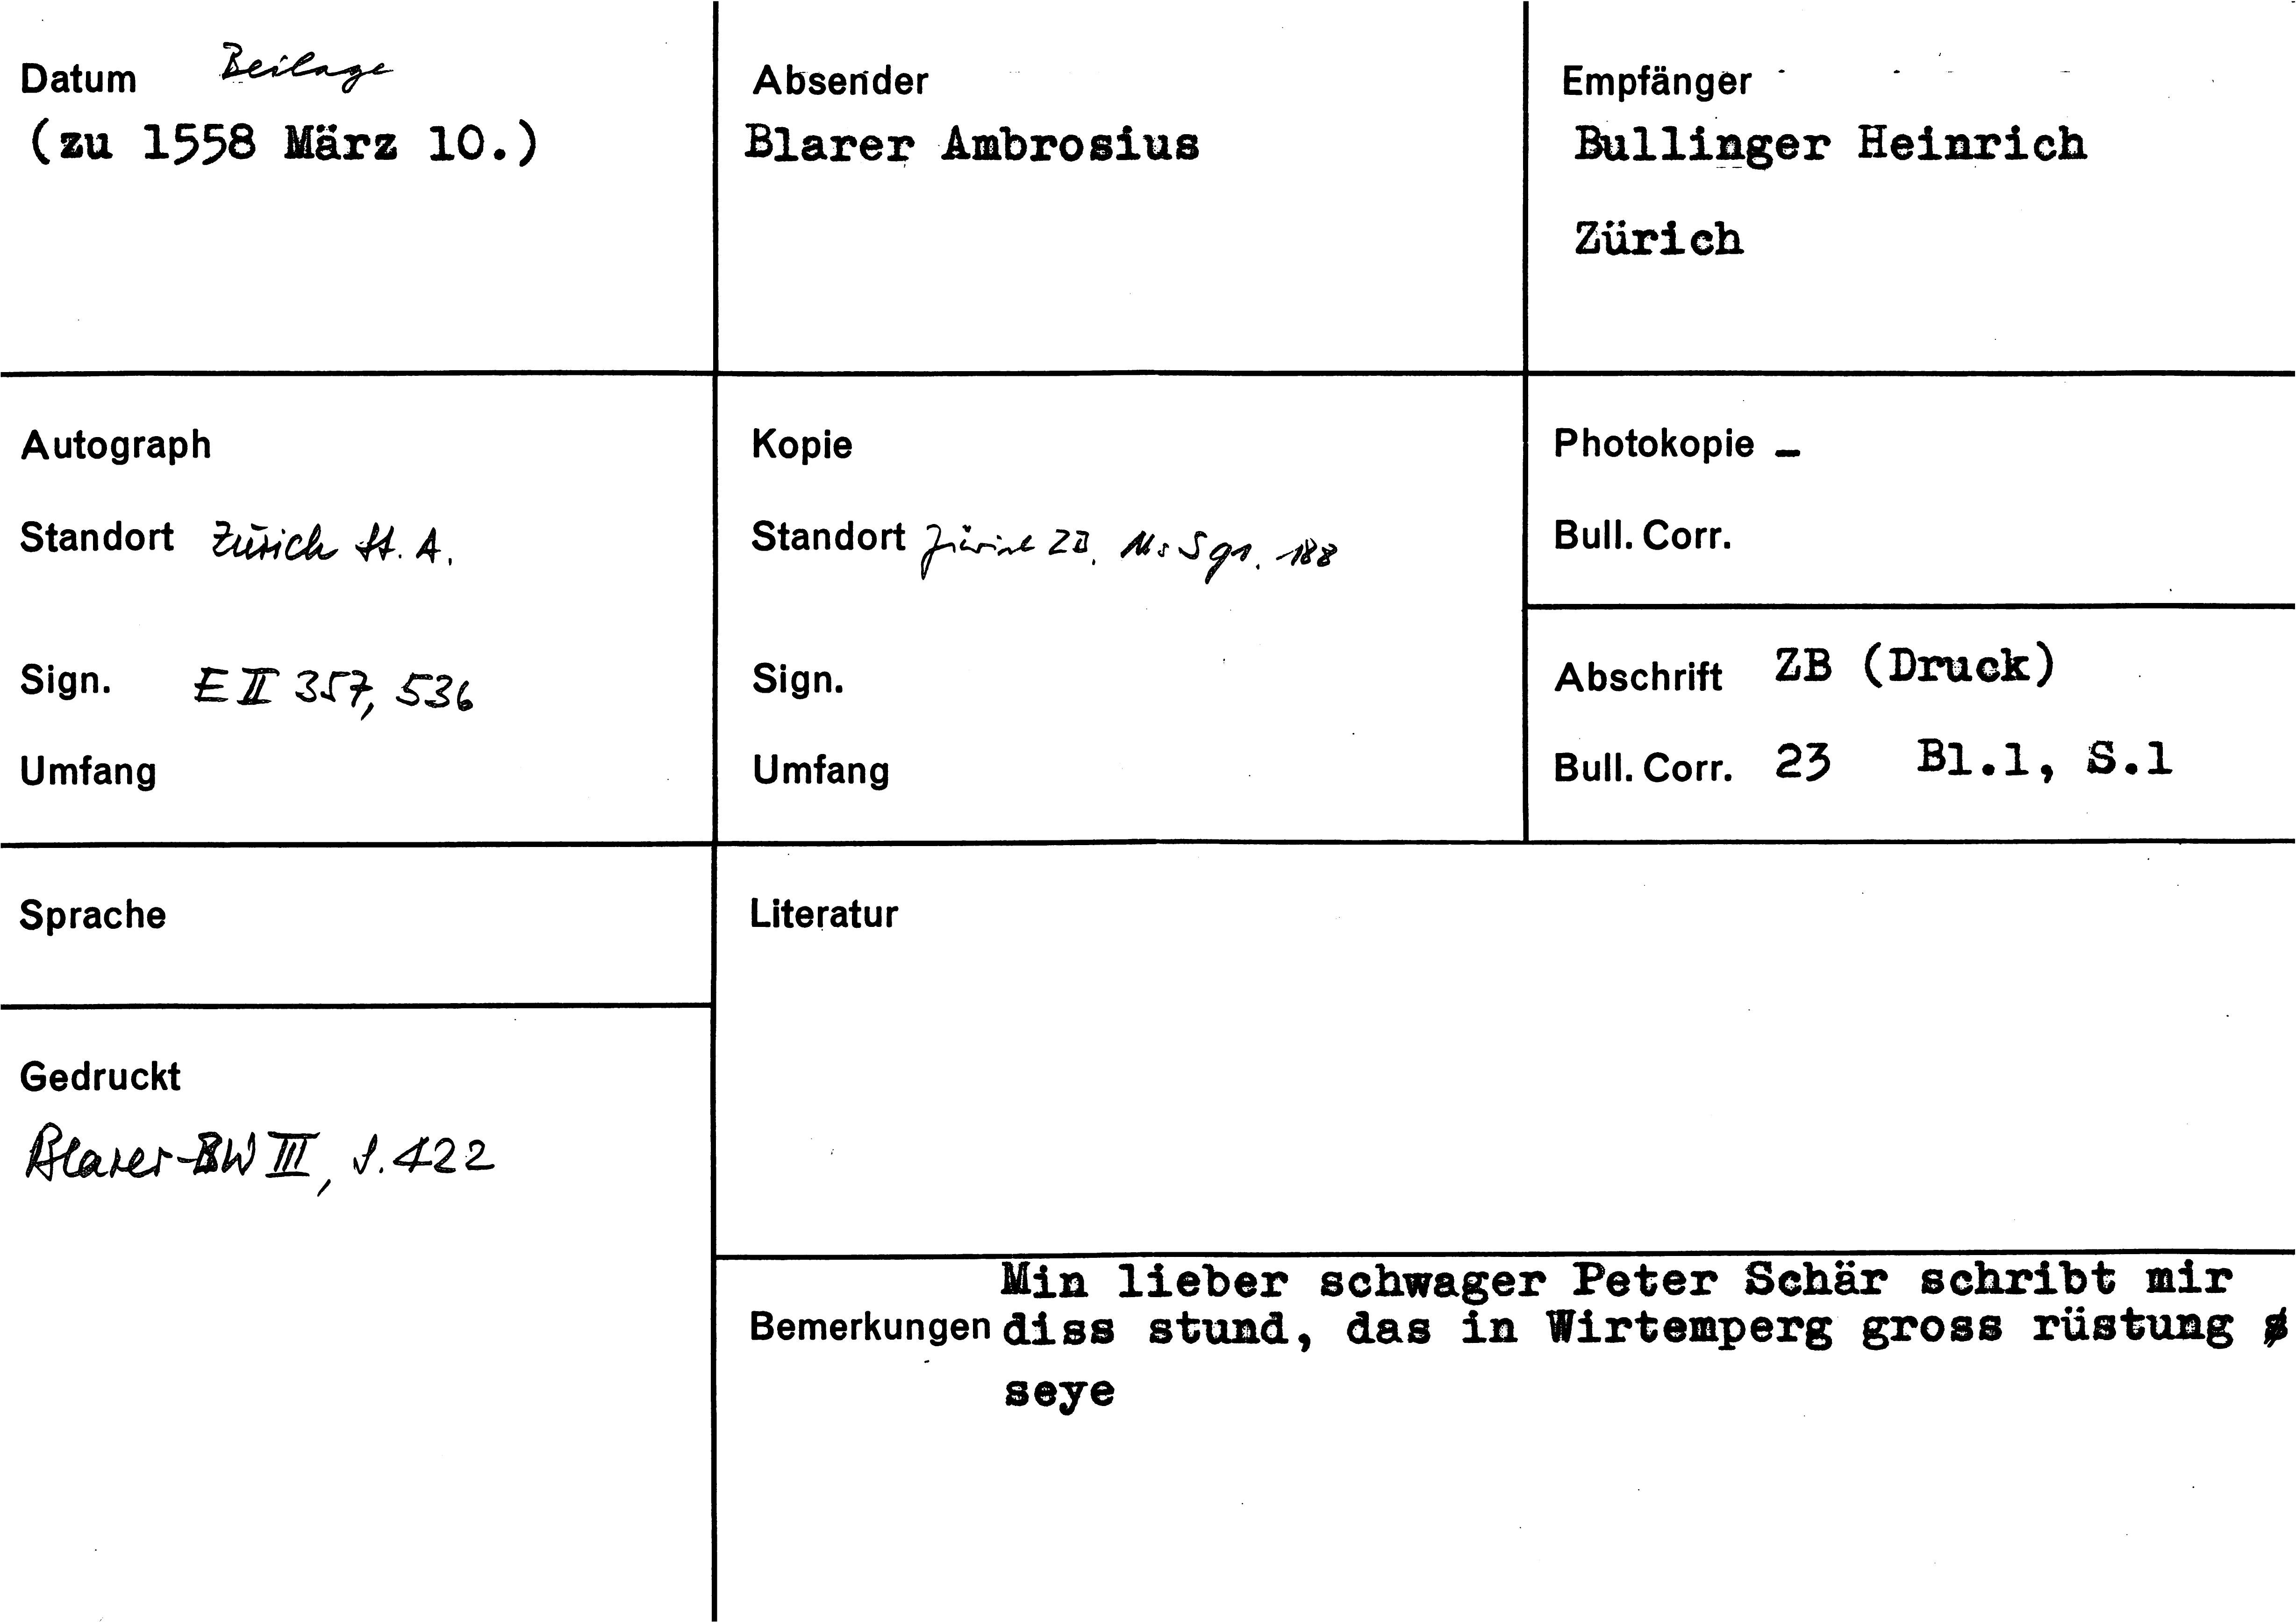 Datum Beilage
(zu 1558 März 10.)
Absender
Blarer Ambrosius
Empfänger
Bullinger Heinrich
Zürich
Autograph
Standort Zürich St. A.
Sign. E II 357, 536
Umfang
Kopie
Standort Zürich ZB. Ms S 188
Sign.
Umfang
Photokopie -
Bull. Corr.
Abschrift ZB (Druck)
Bull. Corr. 23 Bl.1, S.1
Sprache
Gedruckt
Blarer-BW III, S. 422
Literatur
Min lieber schwager Peter Schär schribt mir
Bemerkungen diss stund, das in Wirtemperg gross rüstung
seye